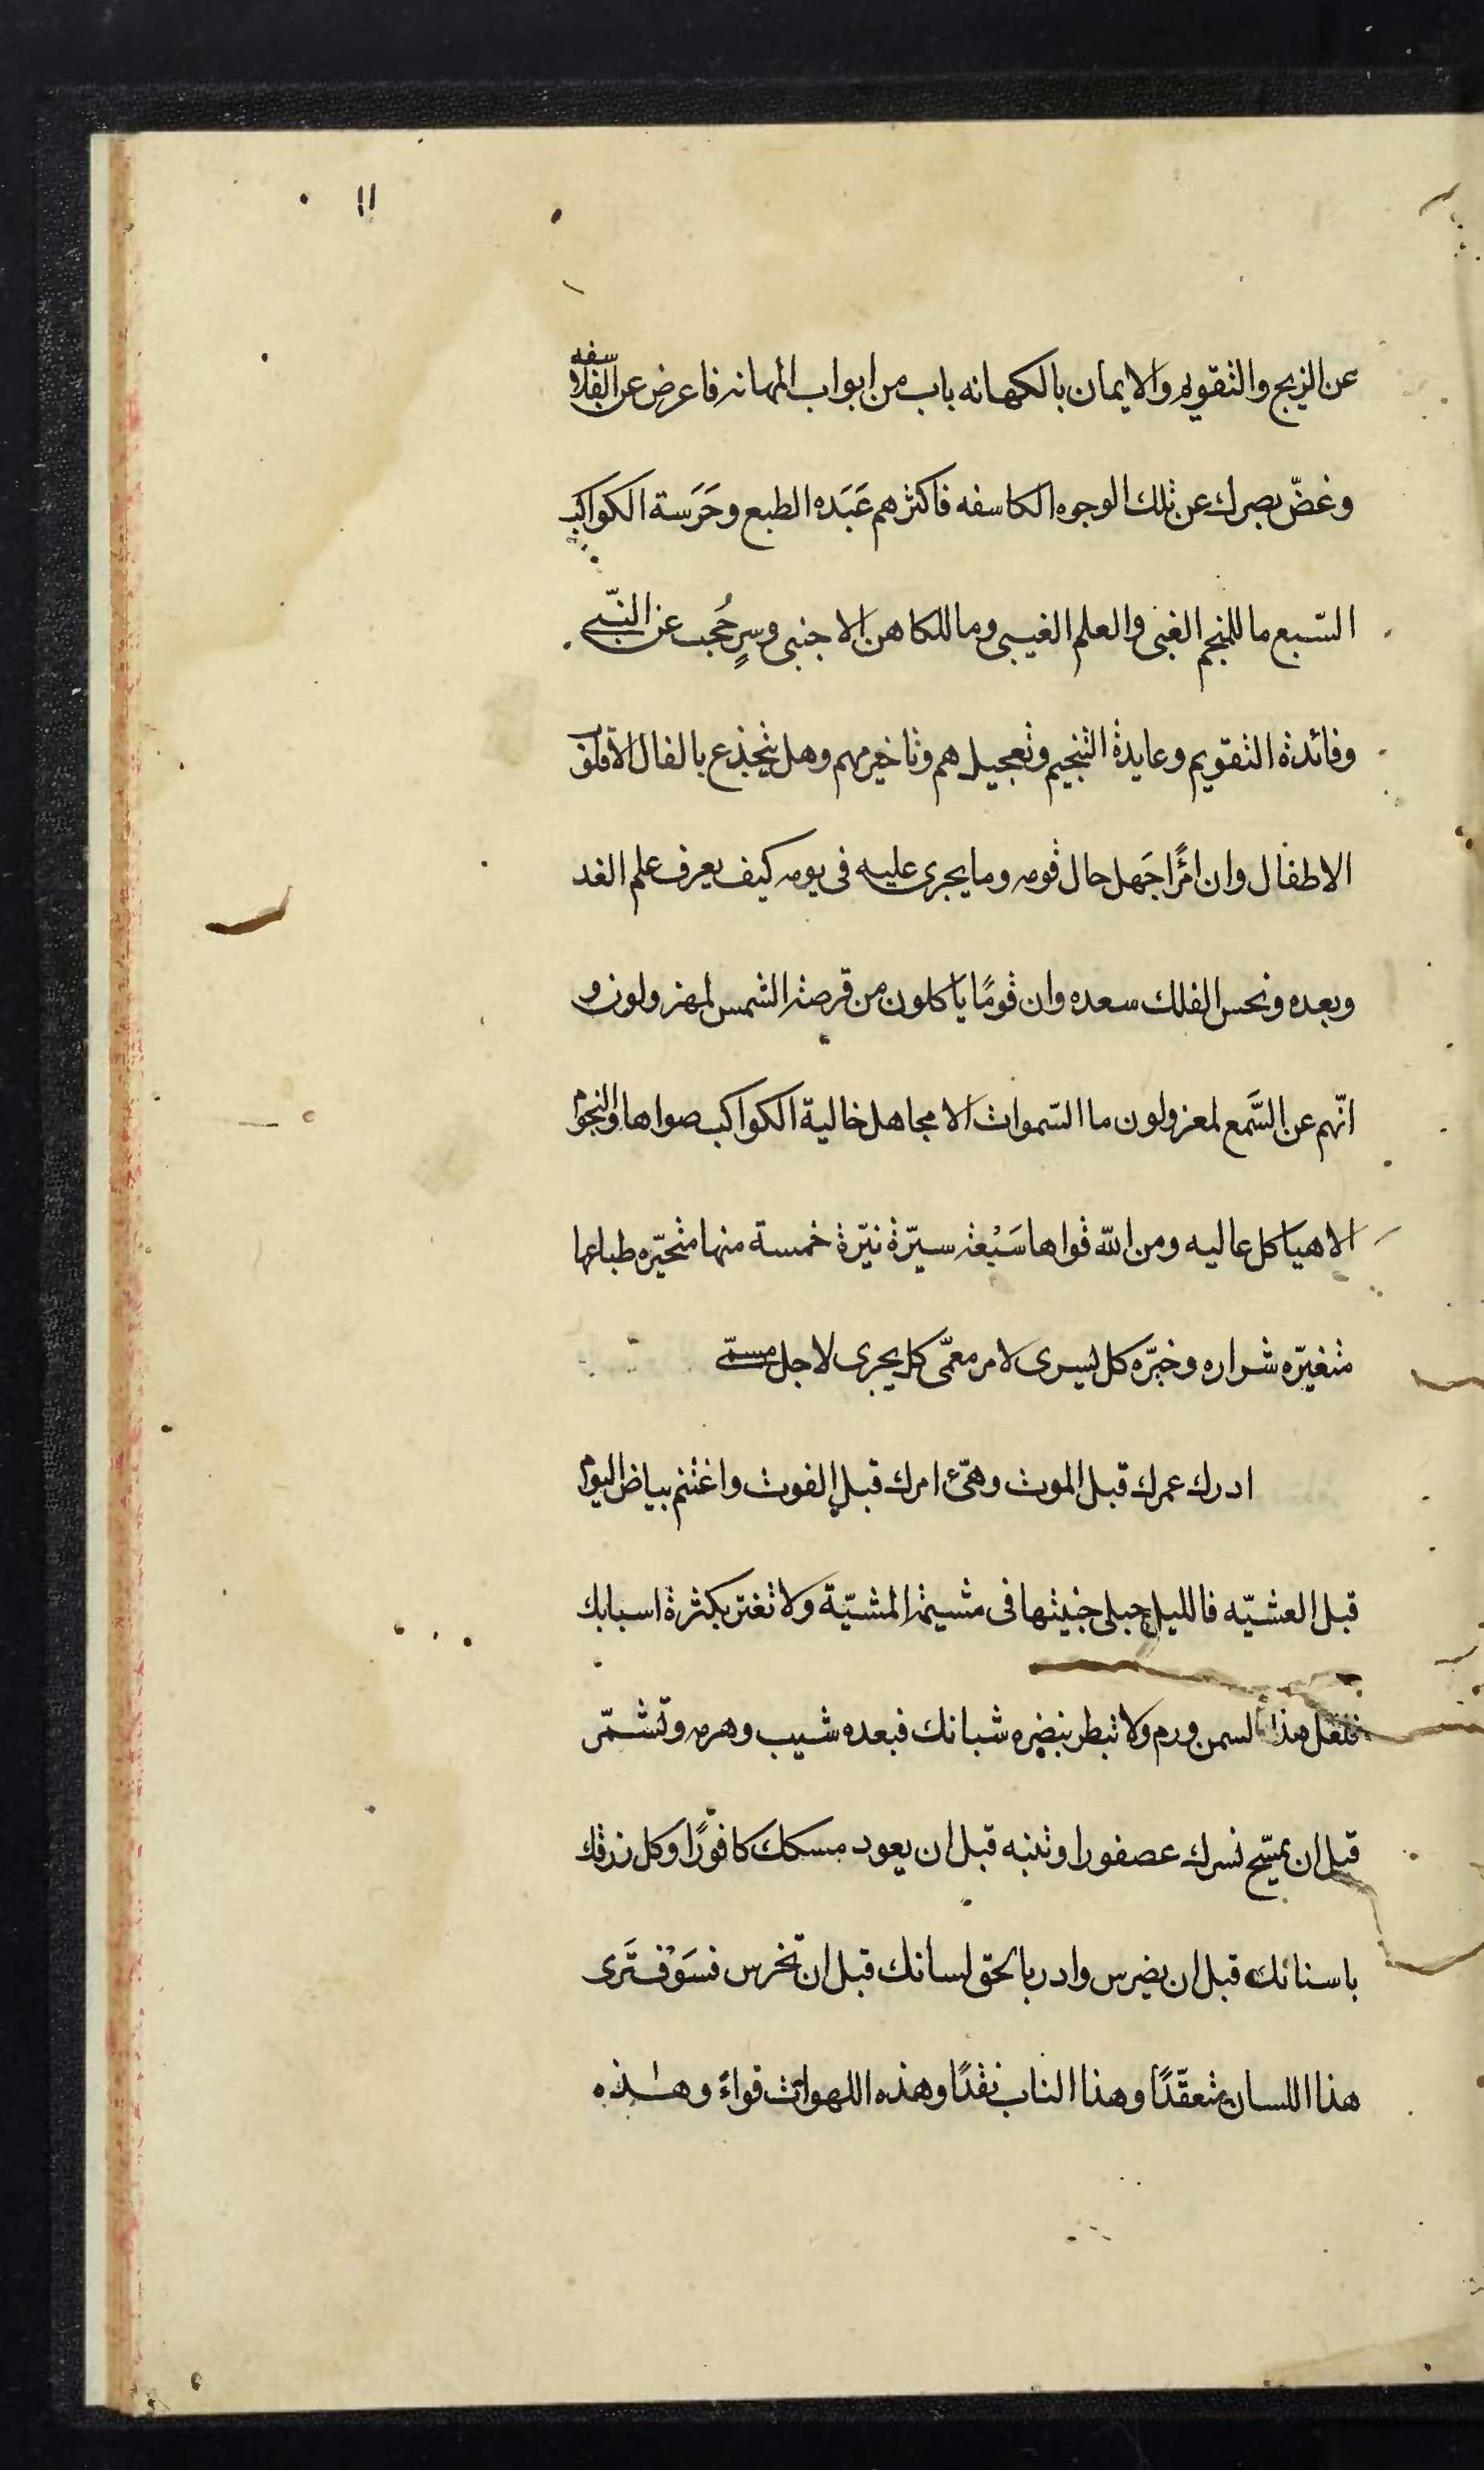 ١١
عن الزيج والتقويم والايمان بالكهانه باب من ابواب المهانه فاعرض عن الفلاسفه
وغضّ بصرك عن تلك الوجوه الكاسفه فاكثرهم عَبَده الطبع وحَرَسة الكواكب
السّبع ما للمنجم الغبى والعلم الغيبى وما للكاهن الاجنبى وسرٍ حُجب عن النبّى
وفائدة التقويم وعايدة التنجيم وتعجيل هم وتاخير مهم وهل ينخدع بالفال الا قلوب
الاطفال وان امرًا جَهل حال قومه وما يجرى عليه فى يومه كيف يعرف علم الغد
وبعده ونحس الفلك سعده وان قومًا ياكلون من قرصة الشمس لمهزولون و
انّهم عن السَّمع لمعزولون ما السّموات الا مجاهل خالية الكواكب صواها والنجوم
الا هياكل عاليه ومن الله قواها سَبْعة سيّرة نيّرة خمسة منها متحيّره طباعها
متغيّره شراره وخيّره كل يسرى لامر معمّى كل يجرى لاجل مسمّى
ادرك عمرك قبل الموت وهيّئ امرك قبل الفوت واغتنم بياض اليوم
قبل العشيّه فالليل حبلى جنينها فى مشيمة المشيّة ولا تغتر بكثرة اسبابك
فلعل هذا السمن ورم ولا تبطر بنضره شبابك فبعده شيب وهرم وتشمّر
قبل ان يمسّح نسرك عصفورا وتنبه قبل ان يعود مسكك كافورًا وكل رزقك
باسنانك قبل ان يضرس وادر بالحق لسانك قبل ان تخرس فسَوْف تَرى
هذا اللسان متعقّدًا وهذا الناب نقدًا وهذه اللهوات قواءً وهذه